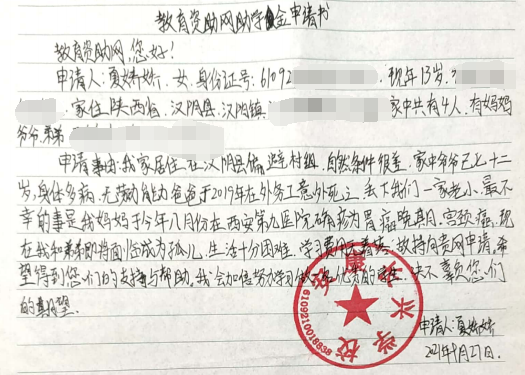 教育资助网助学金申请书
教育资助网,您好!
申请人:夏娇娇,女,身份证号:61092 现年13岁,
家住陕西省,汉阴县,汉阴镇, 家中共有4人,有妈妈
爷爷,弟弟
申请事由:我家居住在汉阴县偏避村组,自然条件很差,家中爷爷已七十二
岁,身体多病,无劳动能力爸爸于2019年在外务工意外死亡,丢下我们一家老小,最不
幸的事是我妈妈于今年八月份在西安第九医院确诊为胃癌晚期,宫颈癌,现
在我和弟弟即将面临成为孤儿,生活十分困难,学习费用 故特向贵网申请,希
望得到您们的支持与帮助。我会加倍努力学习做 优秀的 决不辜负您们
的期望。
兴
学校
6109210018838
申请人:夏娇娇
2021年9月27日.